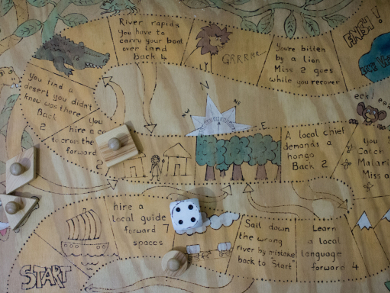 River rapids
you have to
carry your boat
over land
Back 4
GRRRRR
you're bitten
by a lion
Miss 2 goes
while you recover
FINISH
you find a
desert you didn't
know was there
Back
2
hire a
to cross the
forward
2
N
E
A local chief
demands a
honga
Back 2
eek
you
catch
Malar
Miss a
hire a
local guide
forward 7
spaces
Sail down
the wrong
river by mistake
back to Start
Learn
a local
language
forward 4
START